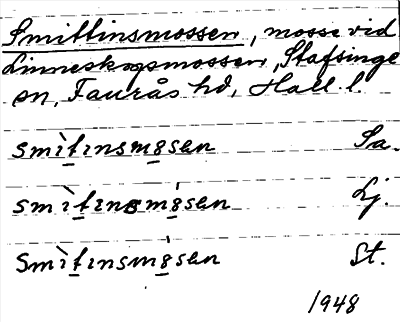 Smittinsmossen, mosse vid
Linneskogsmossen, Stafsinge
sn, Faurås hd, Hall. l.
smìtinsmøsen Sa.
smìtinsmøsen Lj.
smìtinsmøsen St.
1948